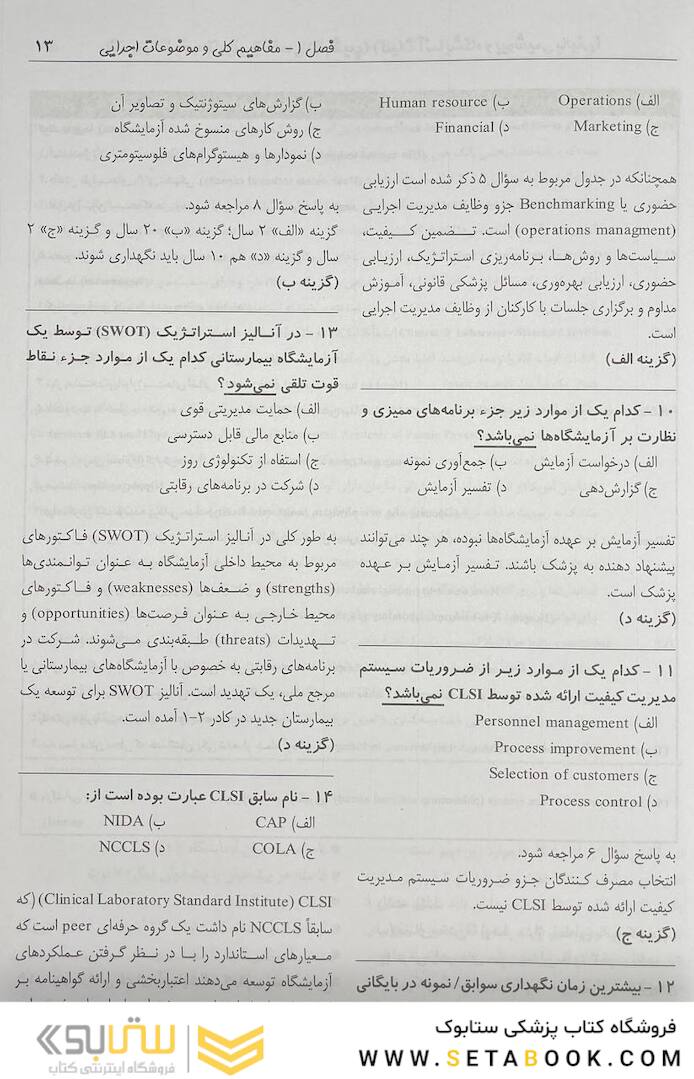 فصل ۱- مفاهیم کلی و موضوعات اجرایی
۱۳
الف) Operations    ب) Human resource
ج) Marketing    د) Financial
همچنانکه در جدول مربوط به سؤال ۵ ذکر شده است ارزیابی
حضوری یا Benchmarking جزو وظایف مدیریت اجرایی
(operations managment) است. تـــضمین کـــیفیت،
سـیاست‌ها و روش‌هـا، بـرنامه‌ریزی استراتـژیک، ارزیـابی
حضوری، ارزیابی بهره‌وری، مسائل پزشکی قانونی، آمـوزش
مداوم و برگزاری جلسات با کارکنان از وظایف مدیریت اجرایی
است.
(گزینه الف)
۱۰ - کدام یک از موارد زیر جزء برنامه‌های ممیزی و
نظارت بر آزمایشگاه‌ها نمی‌باشد؟
الف) درخواست آزمایش    ب) جمع‌آوری نمونه
ج) گزارش‌دهی    د) تفسیر آزمایش
تفسیر آزمایش بر عهده آزمایشگاه‌ها نبوده، هر چند می‌توانند
پیشنهاد دهنده به پزشک باشند. تـفسیر آزمـایش بـر عـهده
پزشک است.
(گزینه د)
۱۱ - کدام یک از موارد زیـر از ضـروریات سـیستم
مدیریت کیفیت ارائه شده توسط CLSI نمی‌باشد؟
الف) Personnel management
ب) Process improvement
ج) Selection of customers
د) Process control
به پاسخ سؤال ۶ مراجعه شود.
انتخاب مصرف کـنندگان جـزو ضـروریات سـیستم مـدیریت
کیفیت ارائه شده توسط CLSI نیست.
(گزینه ج)
۱۲ - بیشترین زمان نگهداری سوابق/ نمونه در بایگانی
ب) گزارش‌های سیتوژنتیک و تصاویر آن
ج) روش کارهای منسوخ شده آزمایشگاه
د) نمودارها و هیستوگرام‌های فلوسیتومتری
به پاسخ سؤال ۸ مراجعه شود.
گزینه «الف» ۲ سال؛ گزینه «ب» ۲۰ سال و گـزینه «ج» ۲
سال و گزینه «د» هم ۱۰ سال باید نگهداری شوند.
(گزینه ب)
۱۳ - در آنـالیز اسـتراتـژیک (SWOT) تـوسط یک
آزمایشگاه بیمارستانی کدام یک از موارد جـزء نـقاط
قوت تلقی نمی‌شود؟
الف) حمایت مدیریتی قوی
ب) منابع مالی قابل دسترسی
ج) استفاه از تکنولوژی روز
د) شرکت در برنامه‌های رقابتی
به طور کلی در آنالیز استراتـژیک (SWOT) فـاکـتورهای
مربوط به محیط داخلی آزمایشگاه بـه عـنوان تـوانـمندی‌ها
(strengths) و ضـعف‌ها (weaknesses) و فـاکـتورهای
محیط خـارجـی بـه عـنوان فـرصت‌ها (opportunities) و
تـــهدیدات (threats) طـبقه‌بندی مـی‌شوند. شـرکت در
برنامه‌های رقابتی به خصوص با آزمایشگاه‌های بیمارستانی یا
مرجع ملی، یک تهدید است. آنالیز SWOT برای توسعه یک
بیمارستان جدید در کادر ۲-۱ آمده است.
(گزینه د)
۱۴ - نام سابق CLSI عبارت بوده است از:
الف) CAP    ب) NIDA
ج) COLA    د) NCCLS
CLSI (Clinical Laboratory Standard Institute) (که
سابقاً NCCLS نام داشت یک گروه حرفه‌ای peer است که
مـعیارهای اسـتاندارد را بـا در نـظر گـرفتن عـملکردهای
آزمایشگاه توسعه می‌دهند اعتباربخشی و ارائه گواهینامه بـر
فروشگاه کتاب پزشکی ستابوک
WWW.SETABOOK.COM
ستابوک
فروشگاه اینترنتی کتاب